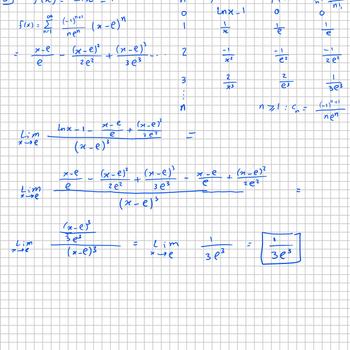 0 lnx-1 0 0
f(x) = ∑ (-1)ⁿ⁺¹/neⁿ (x-e)ⁿ 1 1/x 1/e 1/e
= (x-e)/e - (x-e)²/2e² + (x-e)³/3e³ ... 2 -1/x² -1/e² -1/2e²
3 2/x³ 2/e³ 1/3e³
n n≥1: cₙ = (-1)ⁿ⁺¹/neⁿ
Lim x→e (lnx-1 - (x-e)/e + (x-e)²/2e²)/(x-e)³ =
Lim x→e ((x-e)/e - (x-e)²/2e² + (x-e)³/3e³ - (x-e)/e + (x-e)²/2e²)/(x-e)³ =
Lim x→e ((x-e)³/3e³)/(x-e)³ = Lim x→e 1/3e³ = 1/3e³